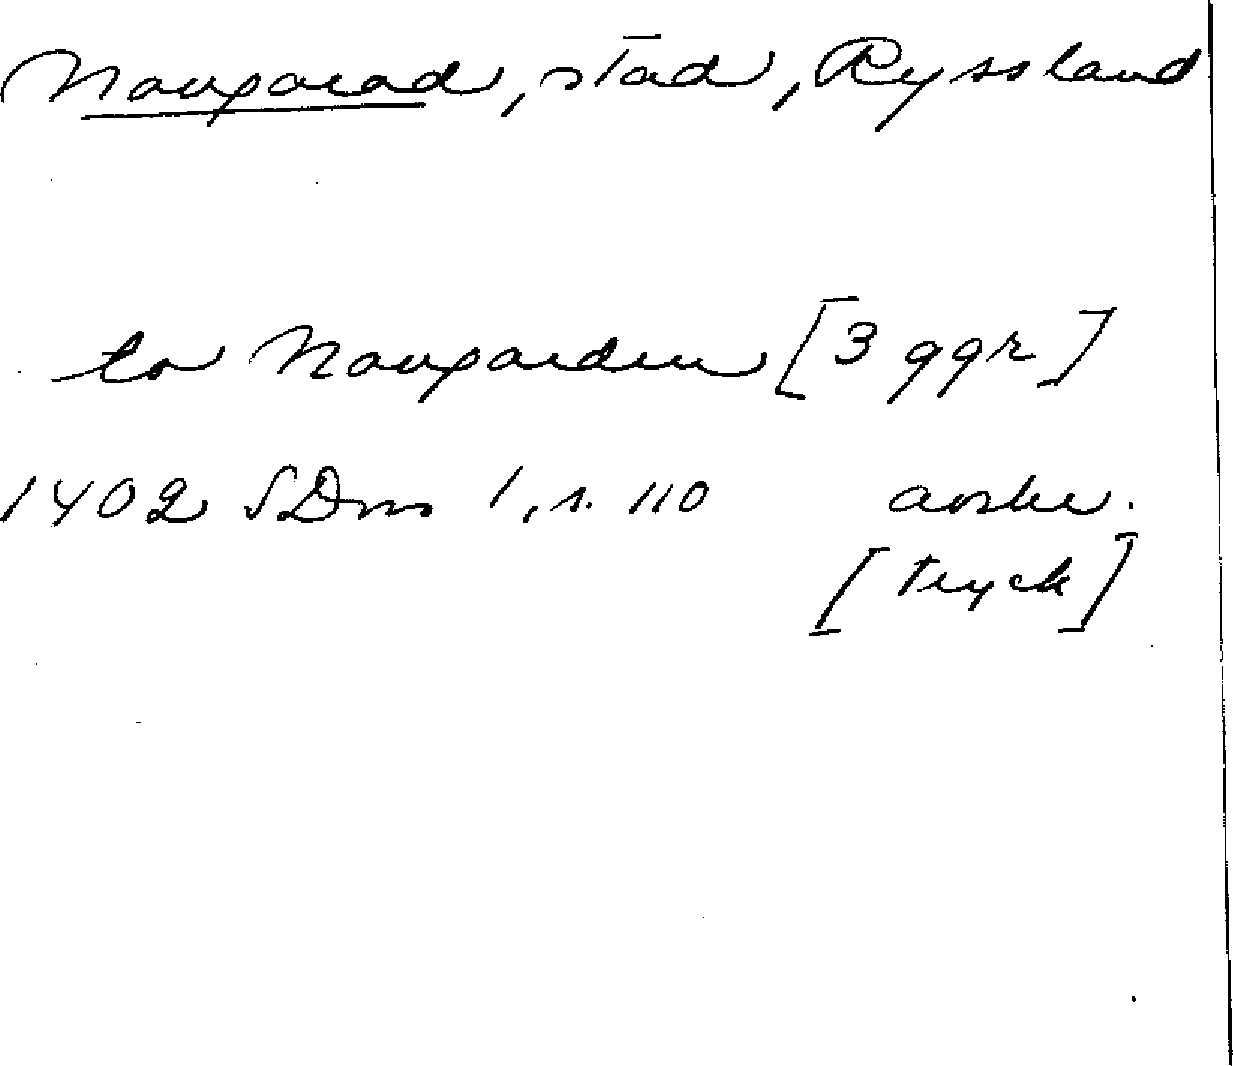 Naugarad, stad, Ryssland
to Naugarden [3 ggr]
1402 SDns 1, s. 110 avskr.
[tryck]